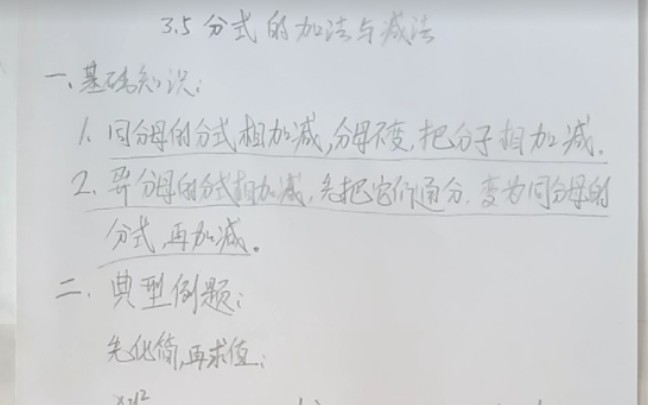 3.5 分式的加法与减法
一、基础知识:
1. 同分母的分式相加减,分母不变,把分子相加减.
2. 异分母的分式相加减,先把它们通分,变为同分母的
分式,再加减。
二、典型例题:
先化简,再求值: